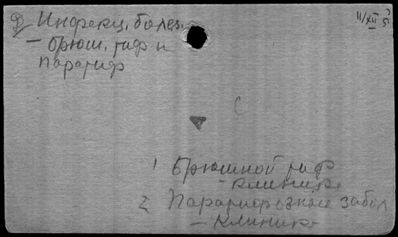 Инфекц. болез.
11/XII 5
– брюш. тиф и
паратиф
1 Брюшной тиф
– клиника
2 Паратифозные забол
– клиника